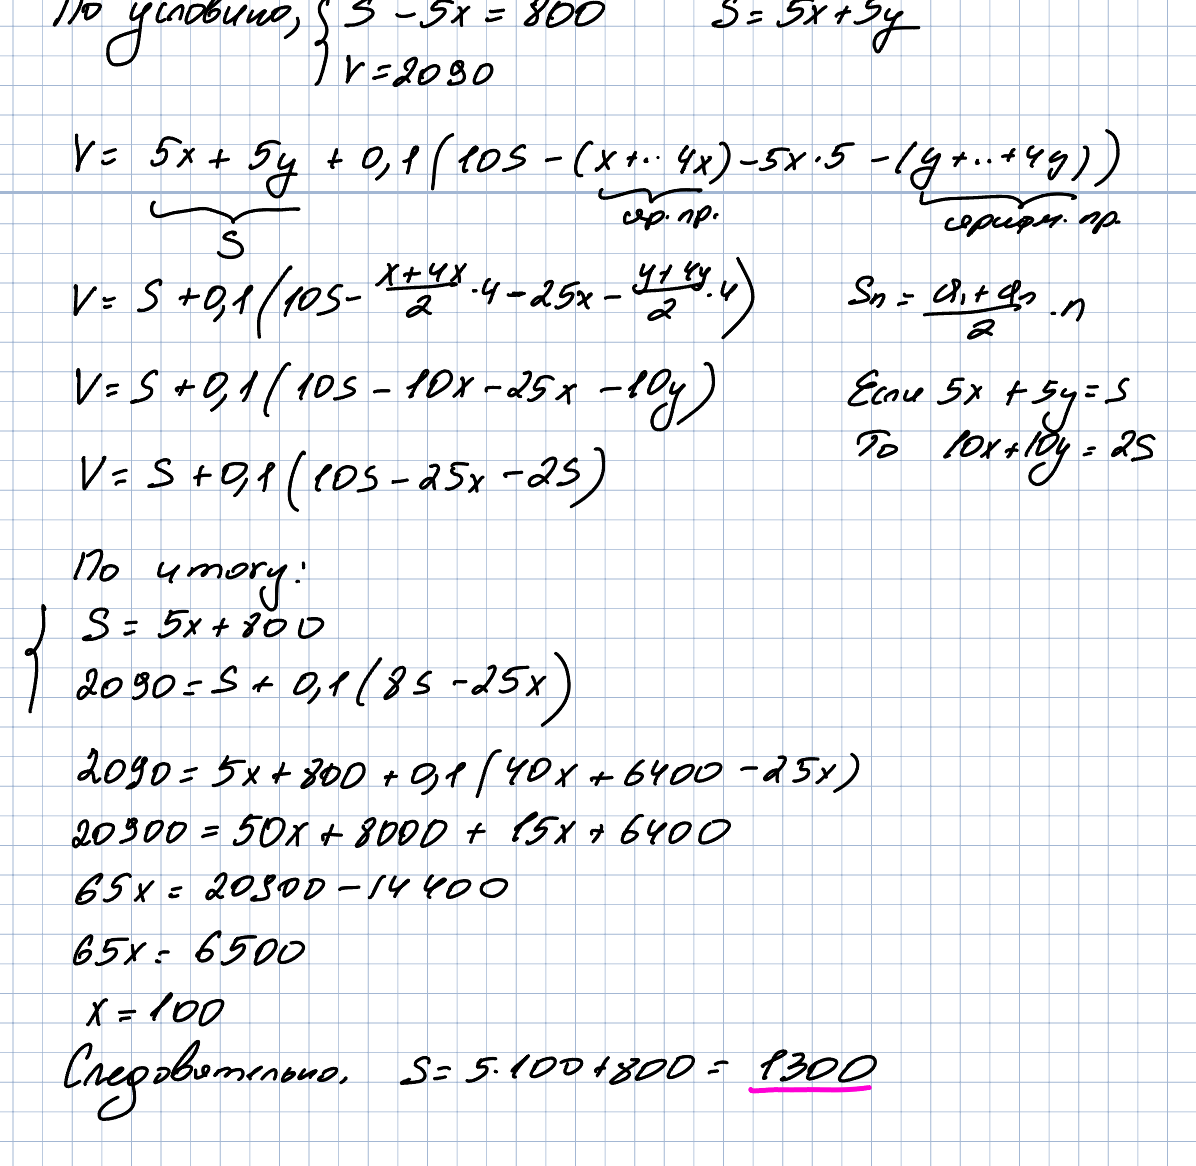 По условию, { S - 5x = 800 S = 5x + 5y
V = 2090
V = 5x + 5y + 0,1 (10S - (x+.. 4x) - 5x·5 - (y+..+4y))
S ар. пр. арифм. пр.
V = S + 0,1 (10S - (x+4x)/2 · 4 - 25x - (y+4y)/2 · 4) Sn = (a₁ + an)/2 · n
V = S + 0,1 (10S - 10x - 25x - 10y) Если 5x + 5y = S
То 10x + 10y = 2S
V = S + 0,1 (10S - 25x - 2S)
По итогу:
{ S = 5x + 800
2090 = S + 0,1 (8S - 25x)
2090 = 5x + 800 + 0,1 (40x + 6400 - 25x)
20900 = 50x + 8000 + 15x + 6400
65x = 20900 - 14400
65x = 6500
x = 100
Следовательно, S = 5·100 + 800 = 1300